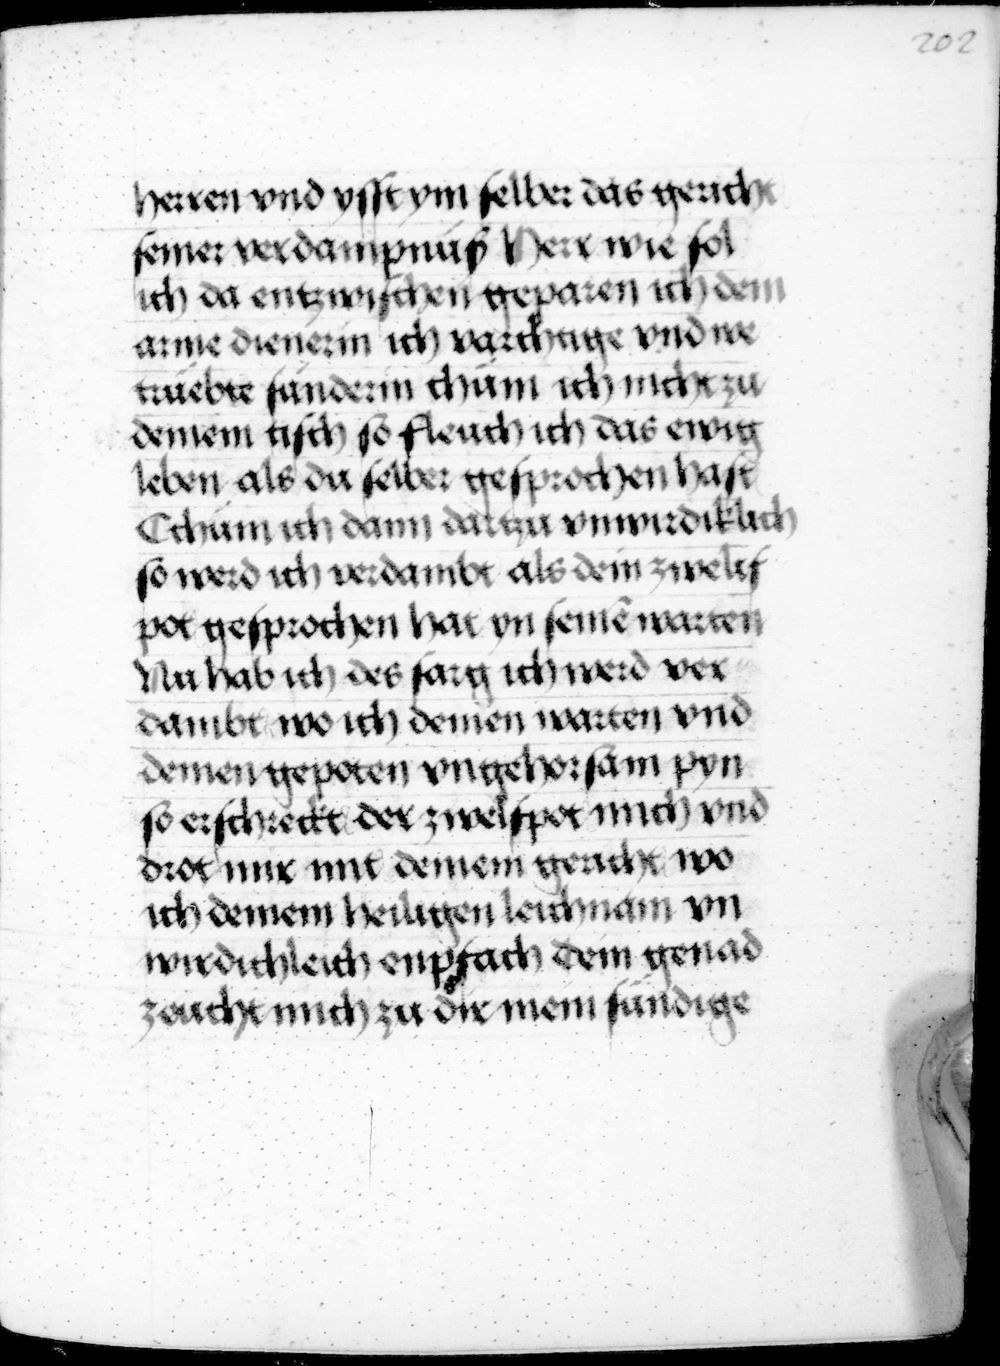 202
herren vnd ysst ym selber das gericht
seiner verdampnuß Herr wie sol
ich da entzwischen geparen ich dein
arme dienerin ich varchtige vnd we
truebte sünderin chüm ich nicht zu
deinem tisch so fleuch ich das ewig
leben als du selber gesprochen hast
Chüm ich dann dartzu vnwirdiklich
so werd ich verdambt als dein zwelif
pot gesprochen hat yn seinē warten
Nu hab ich des sarg ich werd ver
dambt wo ich deinen warten vnd
deinen gepoten vngehorsam pyn
so erschreckt der zwelfpot mich vnd
drot mir mit deinem gericht wo
ich deinem heiligen leichnam vn
wirdichleich enpfach dein genad
zeucht mich zu dir mein sündige